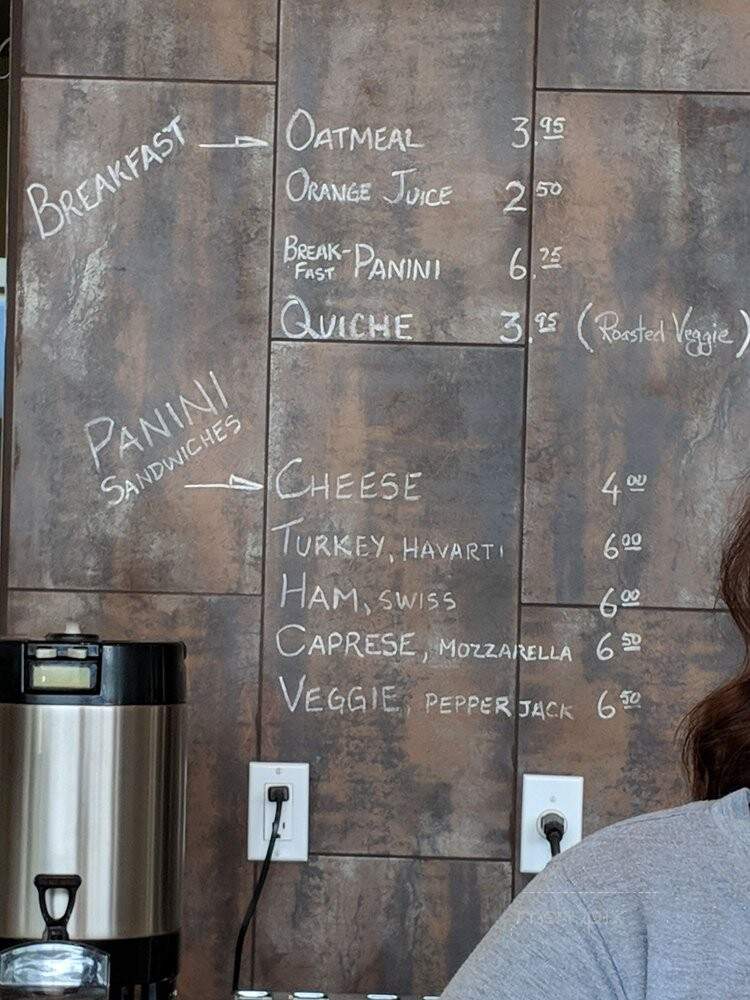 BREAKFAST → OATMEAL 3.95
ORANGE JUICE 2 50
BREAK-FAST PANINI 6.25
QUICHE 3.95 (Roasted Veggie)
PANINI
SANDWICHES → CHEESE 4 00
TURKEY, HAVARTI 6 00
HAM, SWISS 6 00
CAPRESE, MOZZARELLA 6 50
VEGGIE, PEPPER JACK 6 50